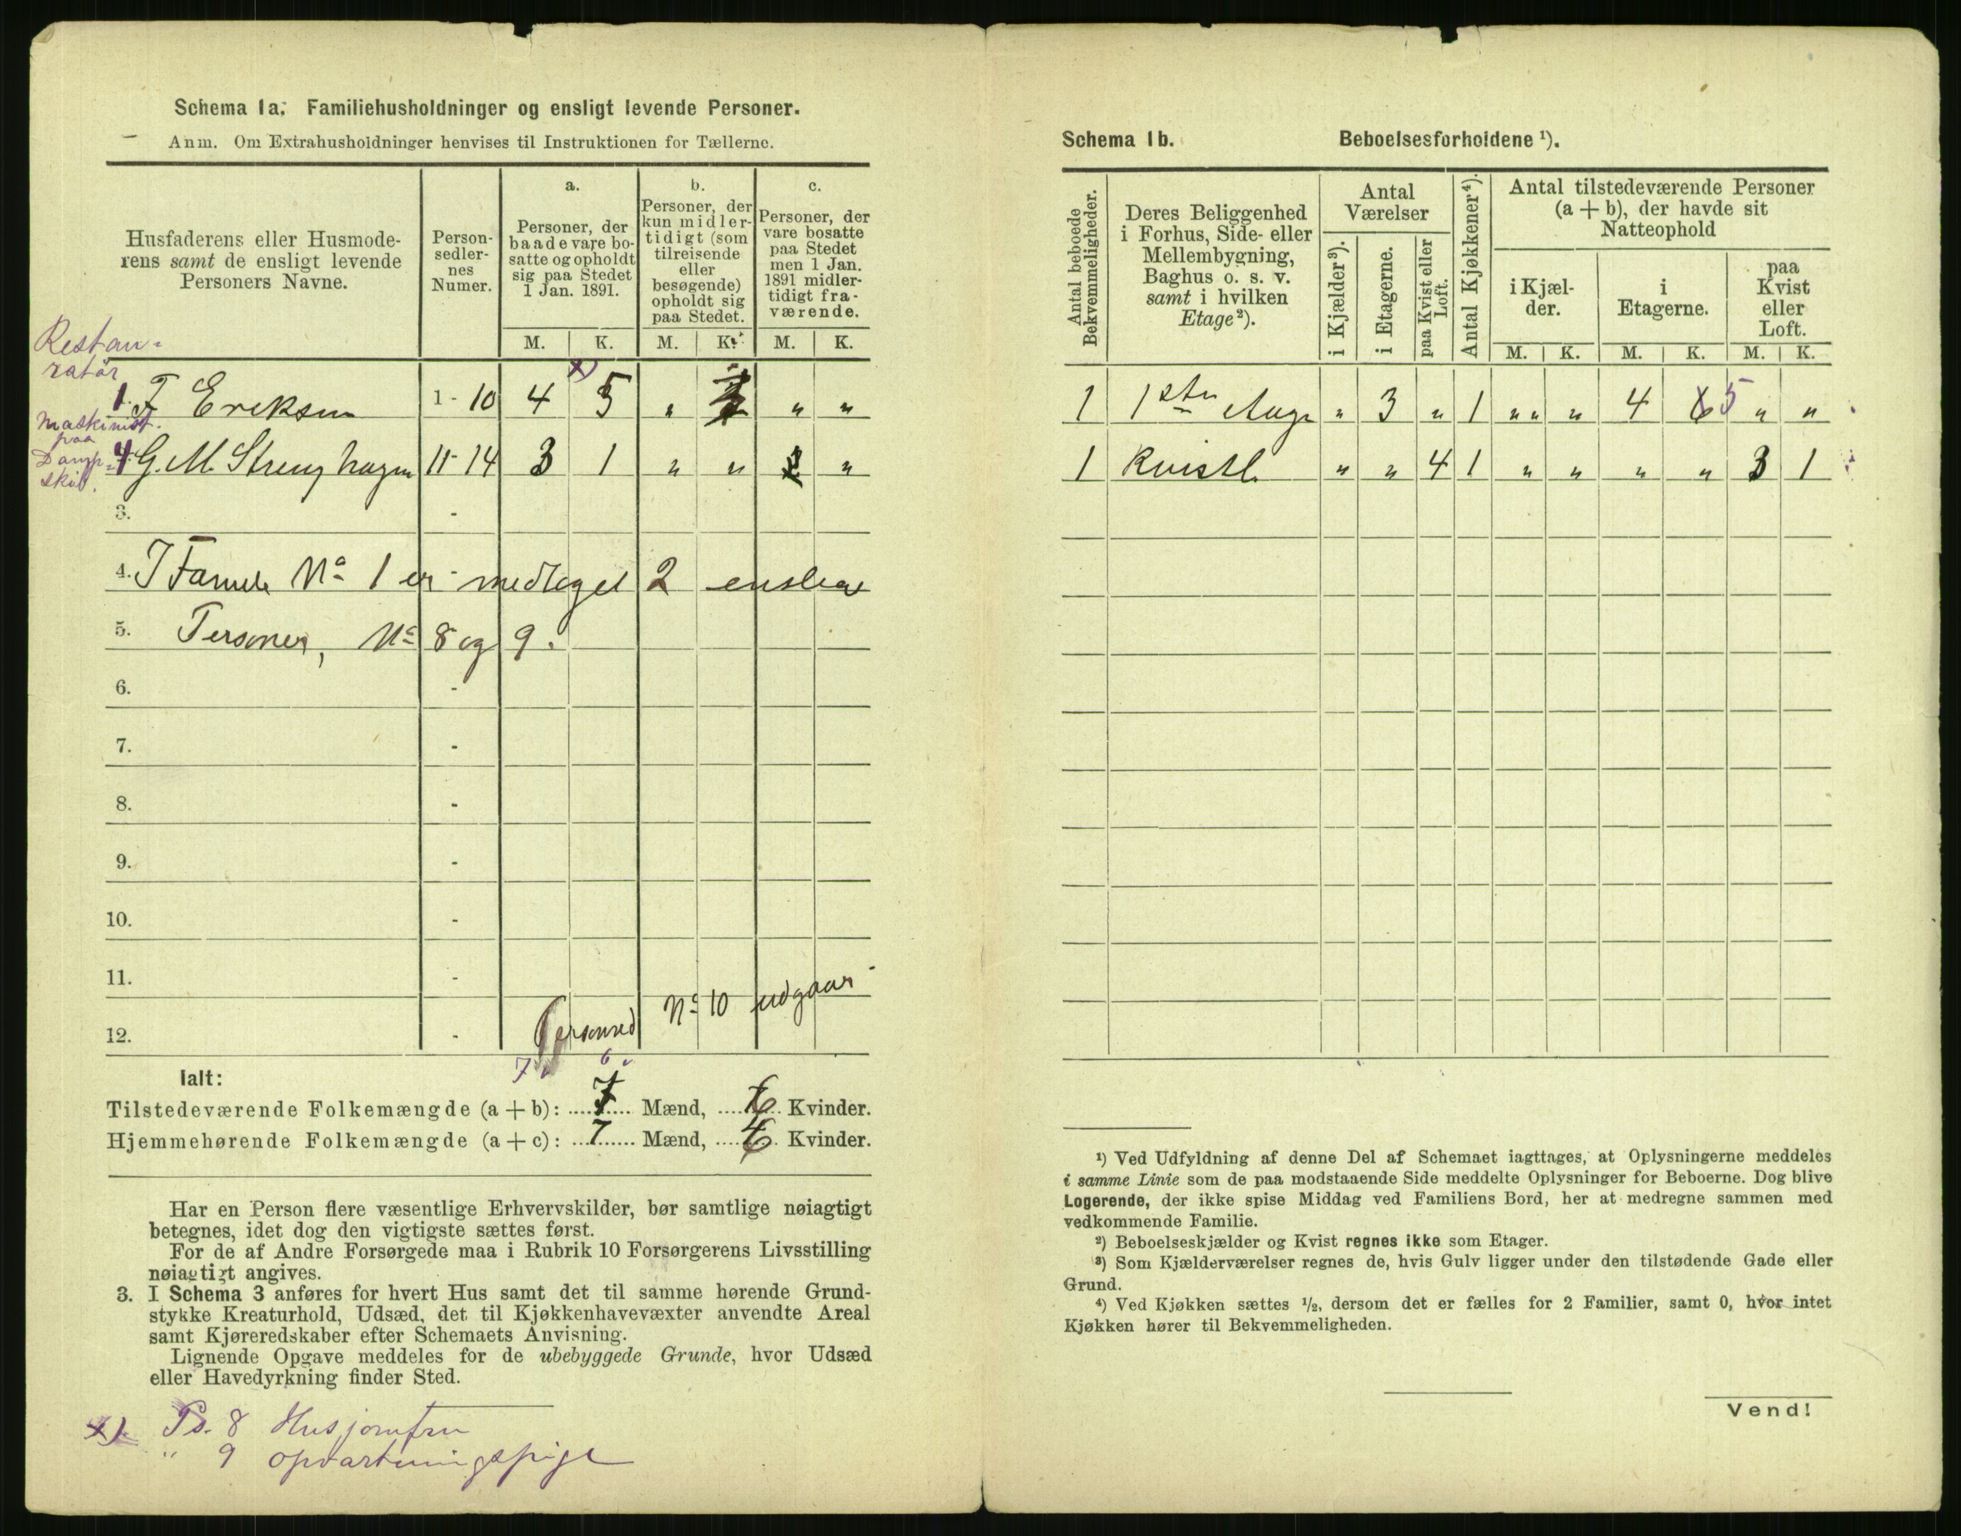 Schema 1a. Familiehusholdninger og ensligt levende Personer.
Anm. Om Extrahusholdninger henvises til Instruktionen for Tællerne.
Husfaderens eller Husmode-
rens samt de ensligt levende
Personers Navne.
Person-
sedler-
nes
Numer.
a.
Personer, der
baade vare bo-
satte og opholdt
sig paa Stedet
1 Jan. 1891.
b.
Personer, der
kun midler-
tidigt (som
tilreisende
eller
besøgende)
opholdt sig
paa Stedet.
c.
Personer, der
vare bosatte
paa Stedet
men 1 Jan.
1891 midler-
tidigt fra-
værende.
M. K. M. K. M. K.
Restau-
ratør
x)
1. F Eriksen 1 - 10 4 5 " " "
Maskinist
paa
Dampskib.
4 G. M. Strenghagen 11 - 14 3 1 " " "
3. -
4. I Famile No 1 er medtaget 2 enslige
5. Personer, No 8 og 9.
6. -
7. -
8. -
9. -
10. -
11. -
12. - Personsed No 10 udgaar
7 6
Ialt:
Tilstedeværende Folkemængde (a + b): 7 Mænd, 6 Kvinder.
Hjemmehørende Folkemængde (a + c): 7 Mænd, 6 Kvinder.
Har en Person flere væsentlige Erhvervskilder, bør samtlige nøiagtigt
betegnes, idet dog den vigtigste sættes først.
For de af Andre Forsørgede maa i Rubrik 10 Forsørgerens Livsstilling
nøiagtigt angives.
3. I Schema 3 anføres for hvert Hus samt det til samme hørende Grund-
stykke Kreaturhold, Udsæd, det til Kjøkkenhavevæxter anvendte Areal
samt Kjøreredskaber efter Schemaets Anvisning.
Lignende Opgave meddeles for de ubebyggede Grunde, hvor Udsæd
eller Havedyrkning finder Sted.
x) Ps. 8 Husjomfru
" 9 opvartningspige
Schema 1b. Beboelsesforholdene ¹).
Antal beboede
Bekvemmeligheder.
Deres Beliggenhed
i Forhus, Side- eller
Mellembygning,
Baghus o. s. v.
samt i hvilken
Etage²).
Antal
Værelser
i Kjælder³).
i Etagerne.
paa Kvist eller
Loft.
Antal Kjøkkener⁴).
Antal tilstedeværende Personer
(a + b), der havde sit
Natteophold
i Kjæl-
der.
i
Etagerne.
paa
Kvist
eller
Loft.
M. K. M. K. M. K.
1 1ste Etage " 3 " 1 " " " 4 6 5 " "
1 Kvistl. " " 4 1 " " " " 3 1
¹) Ved Udfyldning af denne Del af Schemaet iagttages, at Oplysningerne meddeles
i samme Linie som de paa modstaaende Side meddelte Oplysninger for Beboerne. Dog blive
Logerende, der ikke spise Middag ved Familiens Bord, her at medregne sammen med
vedkommende Familie.
²) Beboelseskjælder og Kvist regnes ikke som Etager.
³) Som Kjælderværelser regnes de, hvis Gulv ligger under den tilstødende Gade eller
Grund.
⁴) Ved Kjøkken sættes ½, dersom det er fælles for 2 Familier, samt 0, hvor intet
Kjøkken hører til Bekvemmeligheden.
Vend!